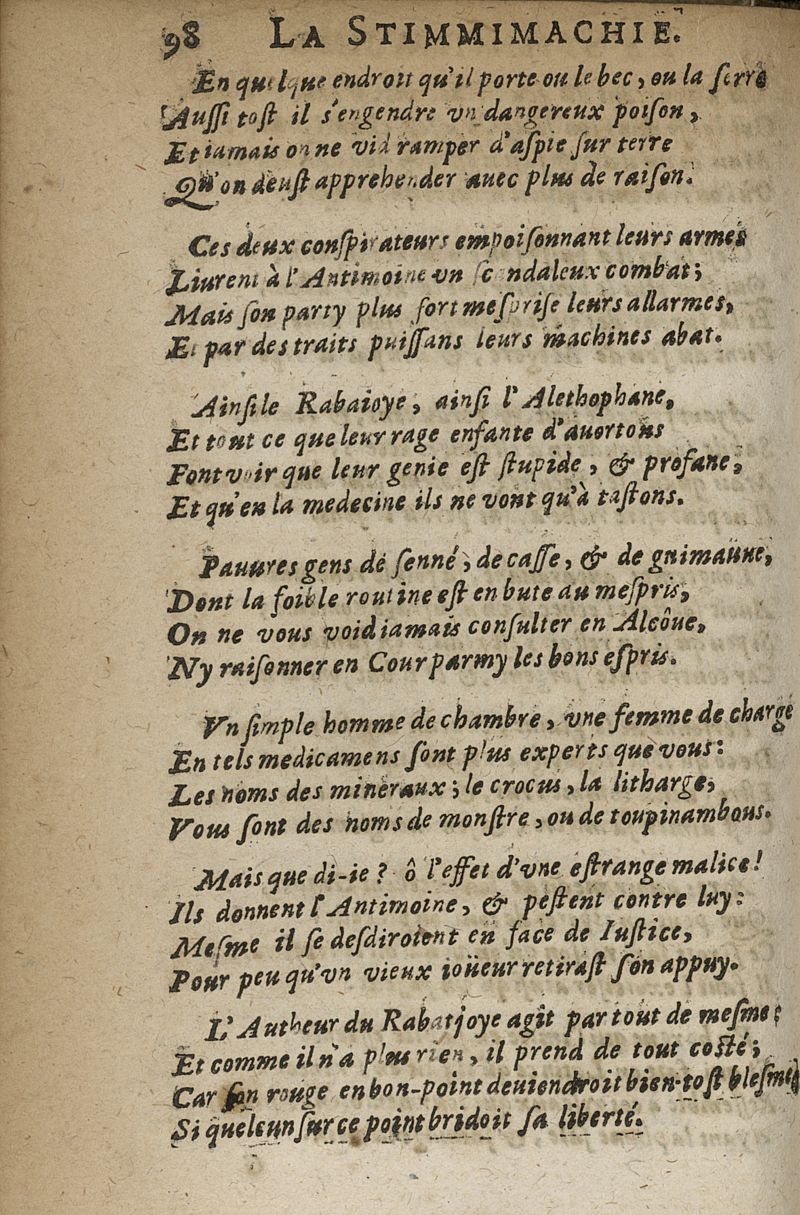 98 LA STIMMIMACHIE.
En quelque endroit qu'il porte ou le bec, ou la serre
Aussi tost il s'engendre vn dangereux poison,
Et iamais on ne vid ramper d'aspic sur terre
Qu'on deust apprehender auec plus de raison.
Ces deux conspirateurs empoisonnant leurs armes
Liurent à l'Antimoine vn scandaleux combat;
Mais son party plus fort mesprise leurs allarmes,
Et par des traits puissans leurs machines abat.
Ainsi le Rabaioye, ainsi l'Alethophane,
Et tout ce que leur rage enfante d'auortons
Font voir que leur genie est stupide, & profane,
Et qu'en la medecine ils ne vont qu'à tastons.
Pauures gens de senné, de casse, & de guimauue,
Dont la foible routine est en bute au mespris,
On ne vous void iamais consulter en Alcôue,
Ny raisonner en Cour parmy les bons espris.
Vn simple homme de chambre, vne femme de charge
En tels medicamens sont plus experts que vous:
Les noms des mineraux; le crocus, la litharge,
Vous sont des noms de monstre, ou de toupinambous.
Mais que di-ie? ô l'effet d'vne estrange malice!
Ils donnent l'Antimoine, & pestent contre luy:
Mesme il se desdiroient en face de Iustice,
Pour peu qu'vn vieux ioüeur retirast son appuy.
L'Autheur du Rabatjoye agit par tout de mesme;
Et comme il n'a plus rien, il prend de tout costé;
Car son rouge en bon-point deuiendroit bien-tost blesme,
Si quelcun sur ce point bridoit sa liberté.